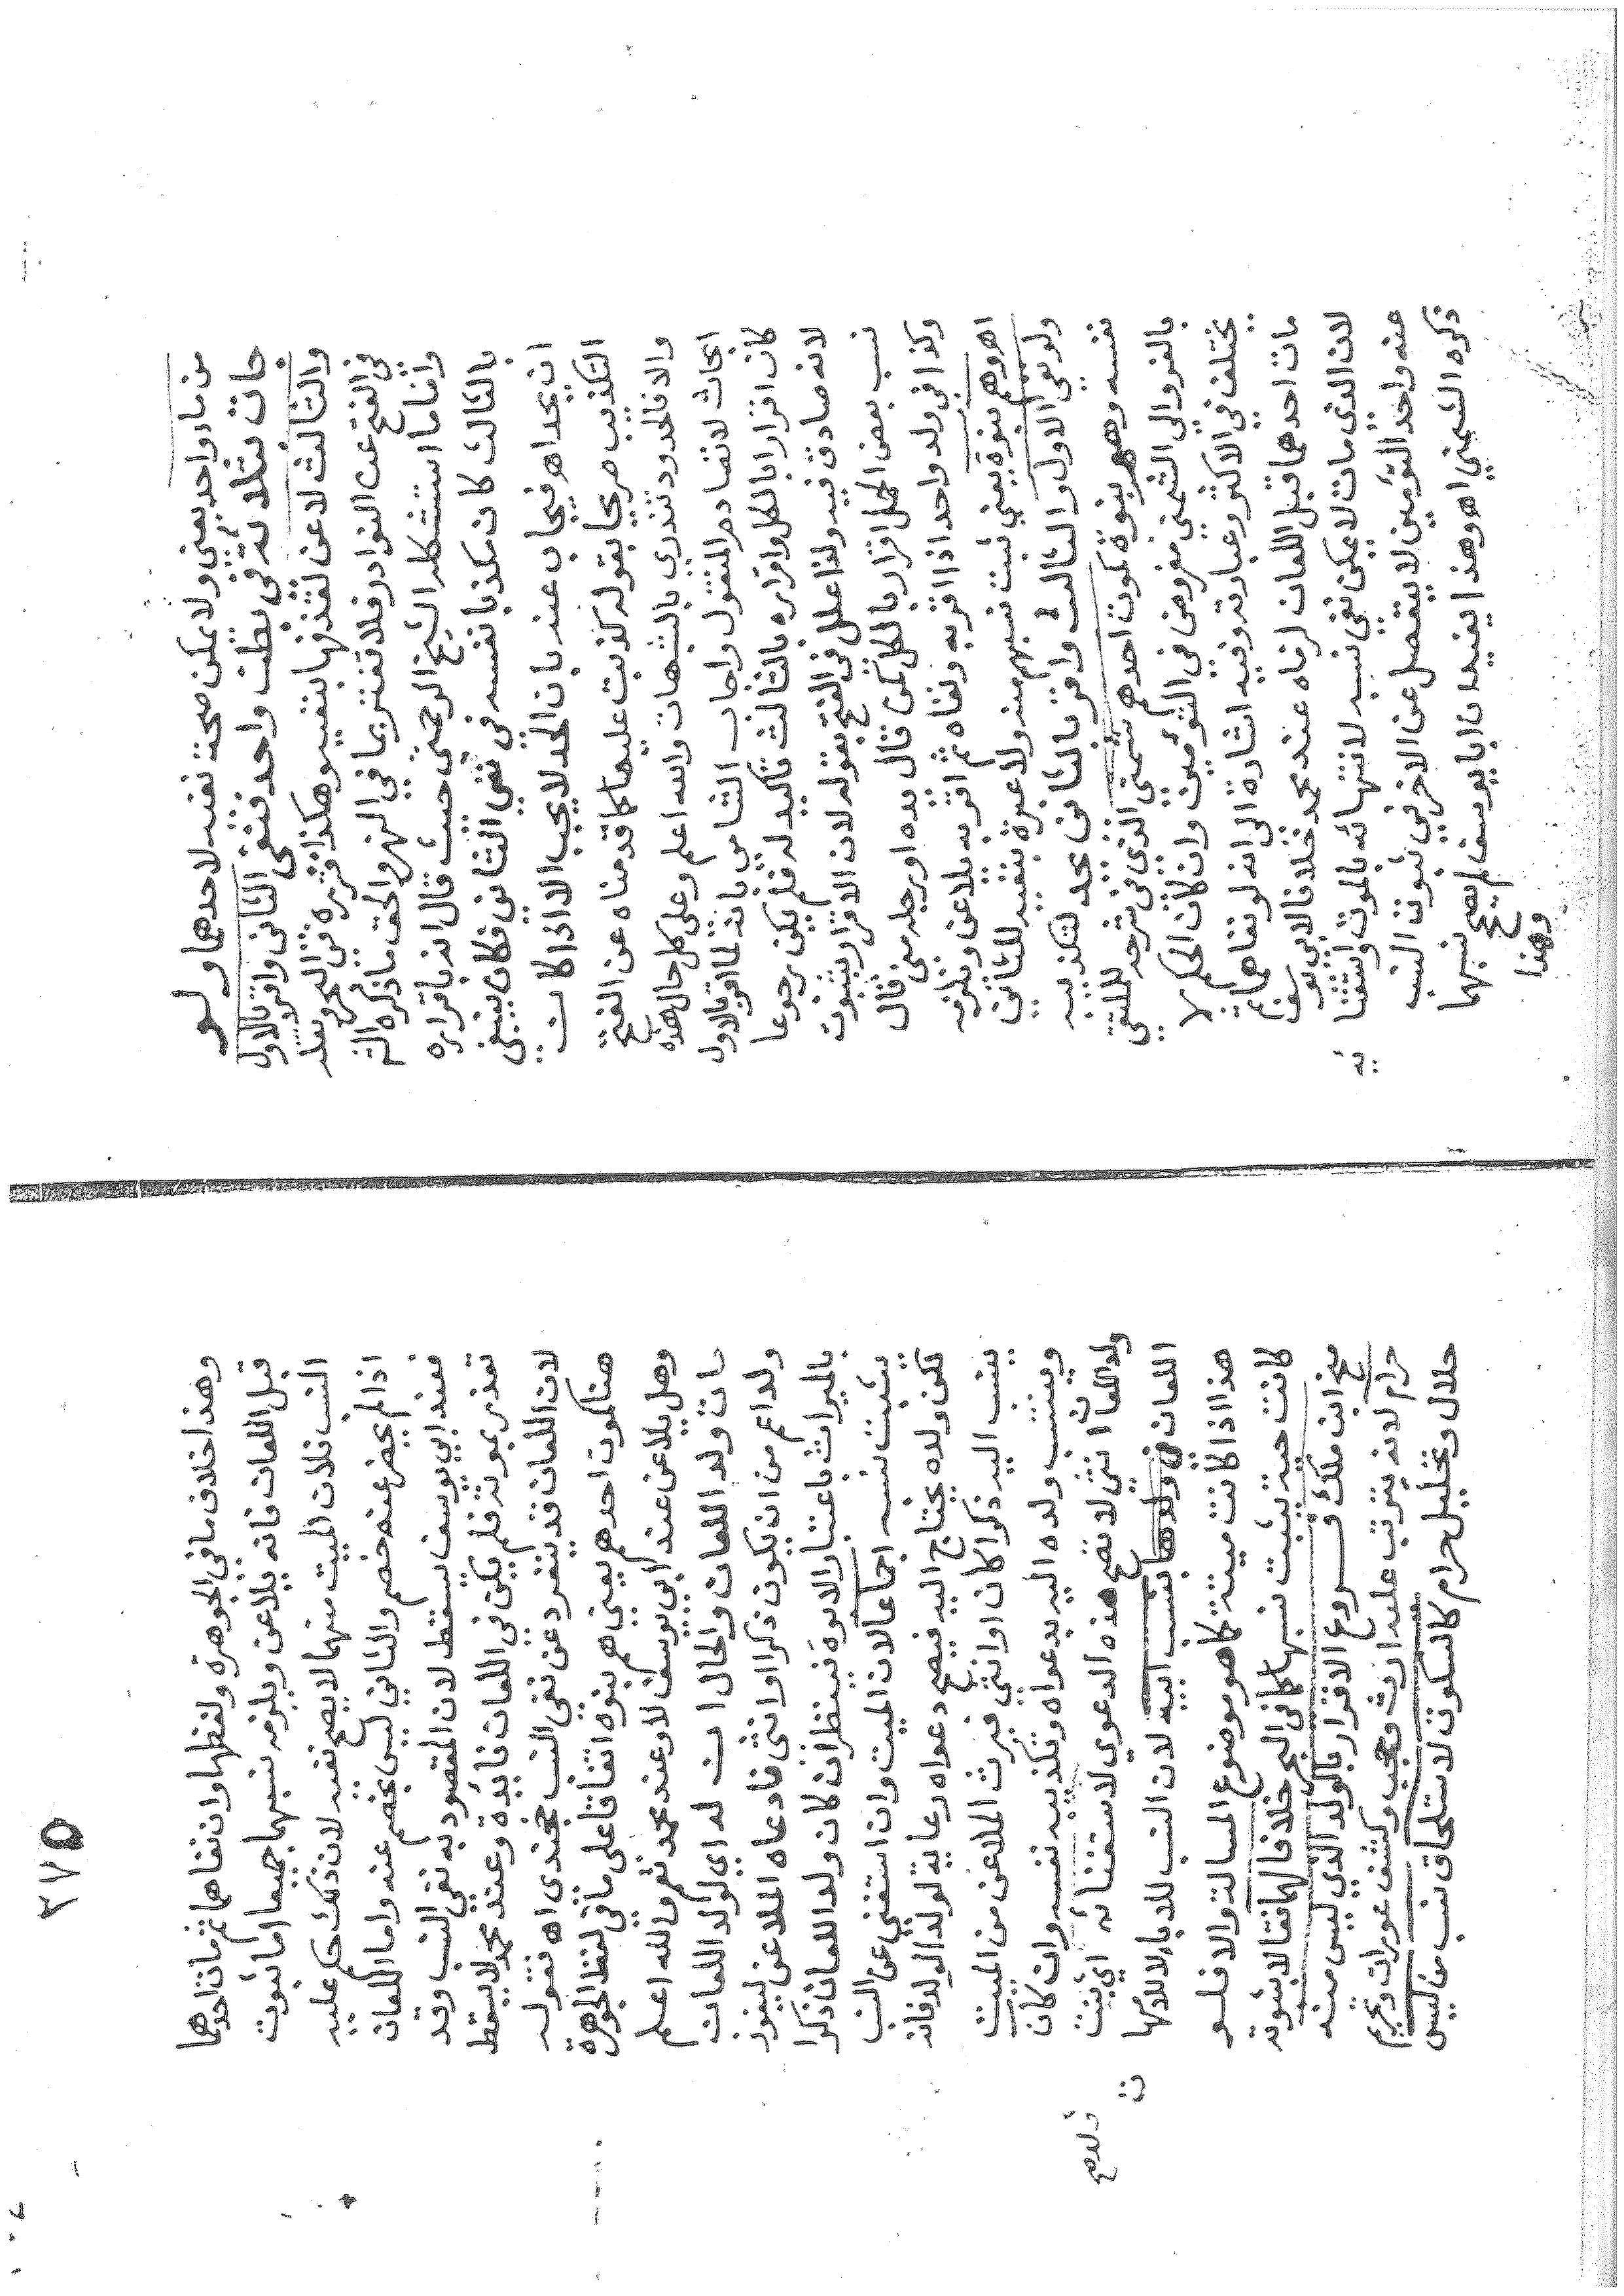 من ماء واحد يعني ولا يمكن صحة نفيه لاحدهما ولو
جاءت بثلاثة في بطن واحد فنفى الثاني واقر بالاول
والثالث لاعن لقذفها بنفيه وهكذا قرره في البحر ونقله
في الفتح عن النوادر فلا تغتر بما في النهر والحق ما ذكره الش
واما ما استشكله الشيخ الرحمتي حيث قال انه باقراره
بالثالث كان مكذبا نفسه في نفي الثاني فكان ينبغي
ان يحد اهـ فيجاب عنه بان الحد لا يجب الا اذا كان
التكذيب صريحا بقوله كذبت عليها كما قدمناه عن الفتح
والا فالحدود تندرئ بالشبهات والله اعلم وعلى كل حال هذه
ابحاث لا تصادم المنقول واجاب الشامي بانه لما اقر بالاول
كان اقرارا بالكل واقراره بالثالث تاكيد له فلم يكن رجوعا
لانه صادق فيه ولذا علل في الفتح بقوله لان الاقرار بثبوت
نسب بعض الحمل اقرار بالكل كمن قال يده او رجله مني قال
وكذا في ولد واحد اذا اقر به ونفاه ثم اقر به يلاعن ويلزمه
اهـ وهم بنوه يعني ثبت نسبهم منه ولا عبرة بنفيه للثاني
ولو نفى الاول والثالث واقر بالثاني يحد لتكذيبه
نفسه وهم بنوه كموت احدهم شمني الذي في شرحه للملتقى
بالعزو الى الشمني مفروض في التوأمين وان كان الحكم لا
يختلف في الاكثر وعبارته وفيه اشارة الى انه لو نفاهما ثم
مات احدهما قبل اللعان لزماه عند محمد خلافا لابي يوسف
لان الذي مات لا يمكن نفي نسبه لانتهائه بالموت واستغنا
عنه واحد التوأمين لا ينفصل عن الاخر في ثبوت النسب
ذكره الشمني اهـ وهذا يفيد ان ابا يوسف لم يصحح نسبهما
وهذا
٢٧٥
وهذا خلاف ما في الجوهرة ولفظها وان نفاهما ثم مات احدهما
قبل اللعان فانه يلاعن ويلزمه نسبهما جميعا اما ثبوت
النسب فلان الميت منهما لا يصح نفيه لان ذلك حكم عليه
اذا لم يحضر عنه خصم والثاني ليس بخصم عنه واما اللعان
فعند ابي يوسف يسقط لان المقصود به نفي النسب وقد
تعذر بموته فلم يكن في اللعان فائدة وعند محمد لا يسقط
لان اللعان قد ينفرد عن نفي النسب خجندي اهـ فقوله
هنا كموت احدهم يعني هم بنوه اتفاقا على ما في لفظ الجوهرة
وهل يلاعن عند ابي يوسف لا وعند محمد نعم والله اعلم
مات ولد اللعان والحال ان له اي لولد اللعان
ولد اعم من ان يكون ذكرا او انثى فادعاه الملاعن ليفوز
بالميراث باعتبار الابوة فينظر ان كان ولد اللعان ذكرا
يثبت نسبه اجماعا لان الميت وان استغنى عن النسب
لكن ولده يحتاج اليه فيصح دعواه رعاية لولد الولد فانه
ينسب اليه ذكرا كان او انثى فيرث الملاعن من الميت
وينتسب ولده اليه بدعواه وتكذيبه نفسه وان كان
ولد اللعان انثى لا تصح هذه الدعوى لاستغنائه اي بنت
اللعان في ولدها بنسب ابيه لان النسب للاباء لا للامهات
هذا اذا كانت ميتة كما هو موضوع المسالة والا فلو
كانت حية يثبت نسبها كما في البحر خلافا لهما نقلا بثبوته
مح ابن ملك فروع الاقرار بالولد الذي ليس منه
حرام لانه يترتب عليه ارث وحجب وكشف عورات وتحريم
حلال وتحليل حرام كالسكوت لاستلحاق نسب من ليس